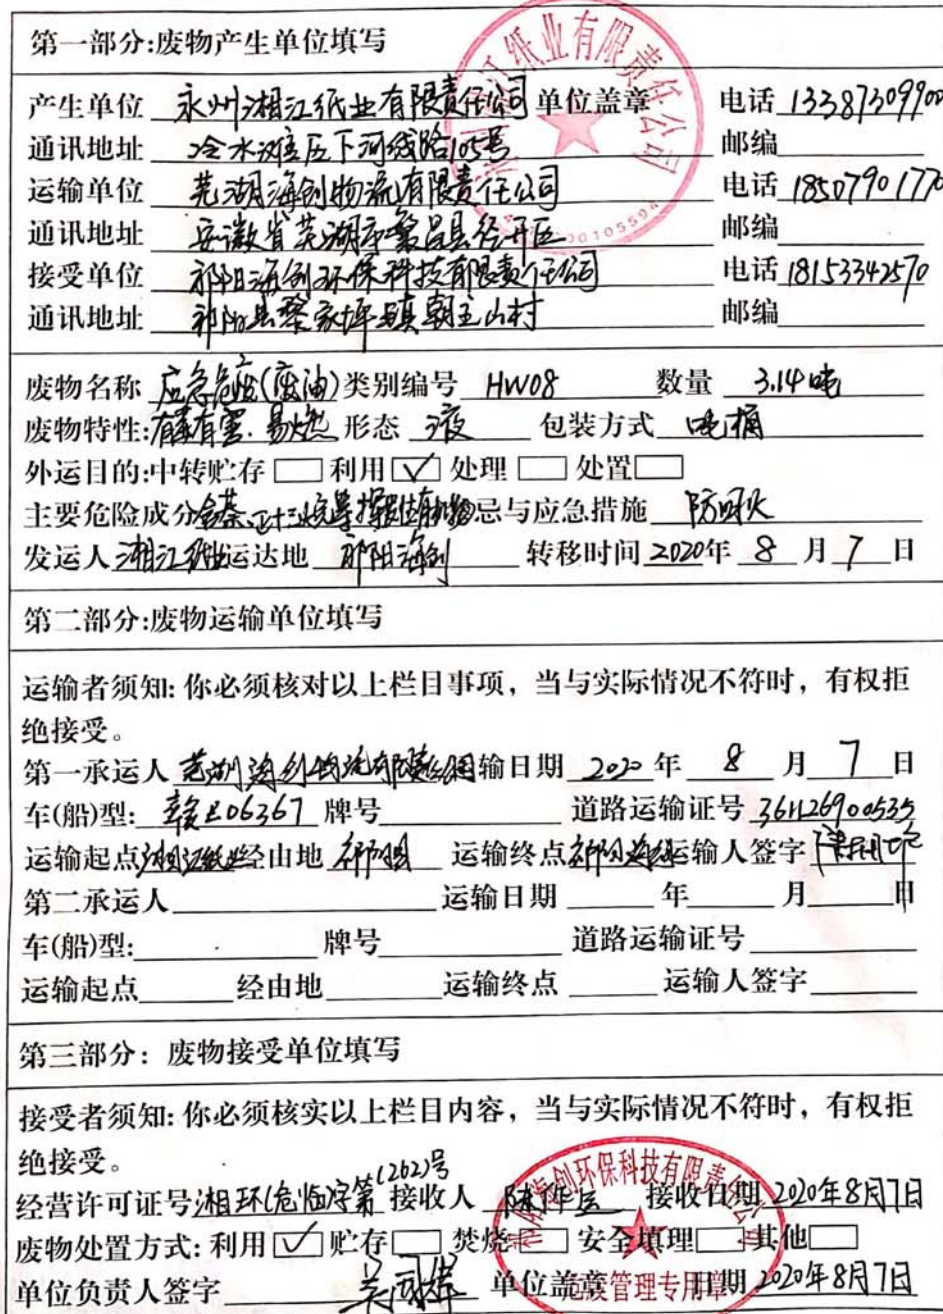 第一部分:废物产生单位填写
产生单位 永州湘江纸业有限责任公司 单位盖章 电话 13387309900
通讯地址 冷水滩区下河线路105号 邮编
运输单位 芜湖海创物流有限责任公司 电话 18507901770
通讯地址 安徽省芜湖市繁昌县经开区 邮编
接受单位 祁阳海创环保科技有限责任公司 电话 18153342570
通讯地址 祁阳县黎家坪镇朝主山村 邮编
废物名称 应急危废(废油) 类别编号 HW08 数量 3.14吨
废物特性:有毒有害.易燃 形态 液 包装方式 吨桶
外运目的:中转贮存 利用 ✓ 处理 处置
主要危险成分 忌与应急措施 防明火
发运人 湘江纸业 运达地 祁阳海创 转移时间 2020年 8 月 7 日
第二部分:废物运输单位填写
运输者须知: 你必须核对以上栏目事项，当与实际情况不符时，有权拒
绝接受。
第一承运人 芜湖海创物流有限责任公司 输日期 2020 年 8 月 7 日
车(船)型: 赣E06367 牌号 道路运输证号 361126900535
运输起点 湘江纸业 经由地 祁阳县 运输终点 祁阳海创 运输人签字
第二承运人 运输日期 年 月 日
车(船)型: 牌号 道路运输证号
运输起点 经由地 运输终点 运输人签字
第三部分：废物接受单位填写
接受者须知: 你必须核实以上栏目内容，当与实际情况不符时，有权拒
绝接受。
经营许可证号 湘环(危临)字第(262)号 接收人 接收日期 2020年8月7日
废物处置方式: 利用 ✓ 贮存 焚烧 安全填埋 其他
单位负责人签字 单位盖章 日期 2020年8月7日